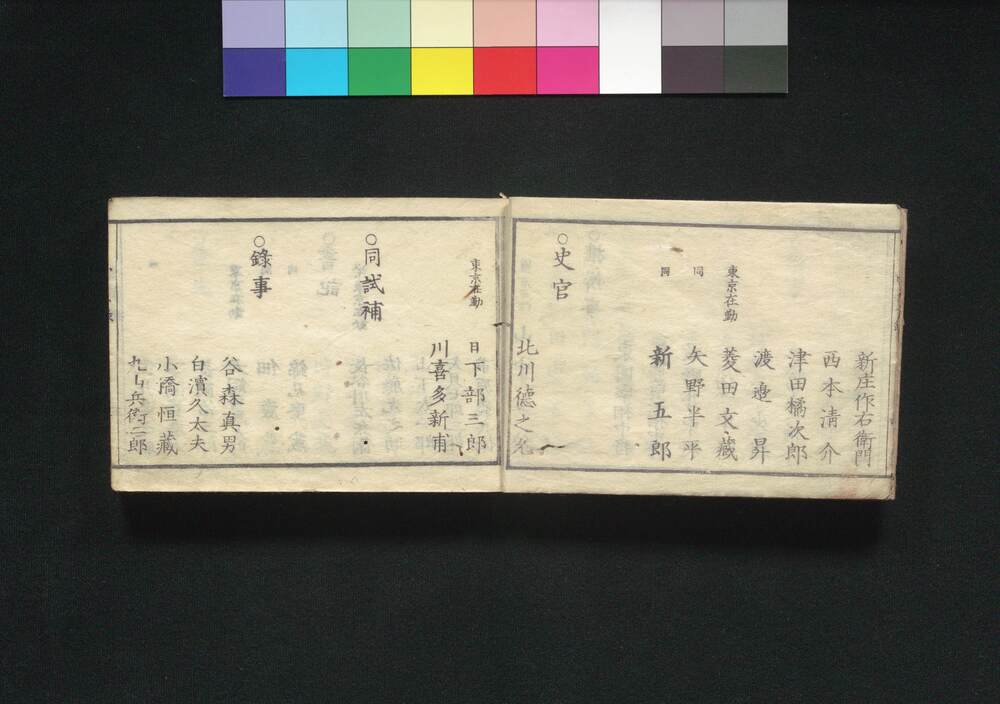 新庄作右衛門
西本清介
津田橘次郎
渡邉昇
東京在勤 菱田文藏
同 矢野半平
同 新五郎
○史官
北川徳之
東京在勤 日下部三郎
川喜多新甫
○同試補
○錄事
谷森真男
白濱久太夫
小橋恒藏